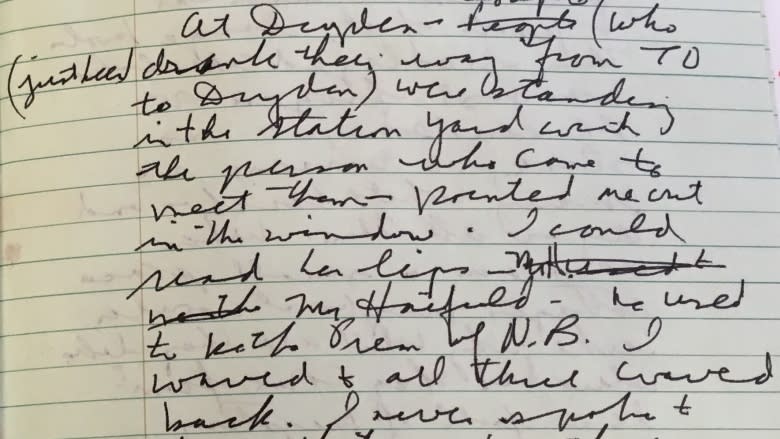 At Dryden - people (who
(just been drank their way from TO
to Dryden) were standing
in the station yard with
the person who came to
meet them - pointed me out
in the window. I could
read her lips -
Mr Hatfield - he used
to be the Prem of N.B. I
waved & all three waved
back. I never spoke to